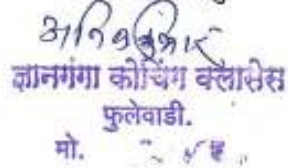 ज्ञानगंगा कोचिंग क्लासेस
फुलेवाडी.
मो.